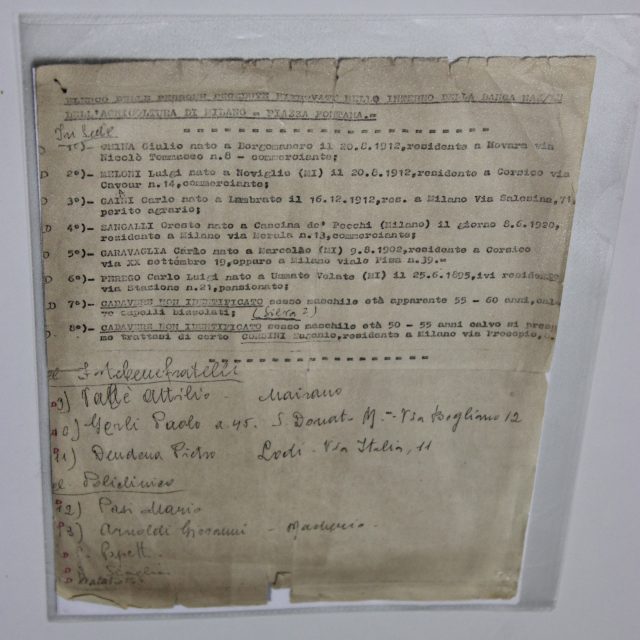 ELENCO DELLE PERSONE DECEDUTE RITROVATE NELLO INTERNO DELLA BANCA NAZ/LE
DELL'AGRICOLTURA DI MILANO = PIAZZA FONTANA.=
In Sede
1°)- CHINA Giulio nato a Borgomanero il 20.8.1912,residente a Novara via
Nicolò Tommaseo n.8 - commerciante;
2°)- MELONI Luigi nato a Noviglio (MI) il 20.8.1912,residente a Corsico via
Cavour n.14,commerciante;
3°)- GAINI Carlo nato a Lambrate il 16.12.1912,res. a Milano Via Salesina,71,
perito agrario;
4°)- SANGALLI Oreste nato a Cascina de' Pecchi (Milano) il giorno 8.6.1920,
residente a Milano via Merula n.13,commerciante;
5°)- GARAVAGLIA Carlo nato a Marcello (MI) 9.8.1902,residente a Corsico
via XX settembre 19,oppure a Milano viale Pisa n.39.=
6°)- PEREGO Carlo Luigi nato a Usmate Velate (MI) il 25.6.1895,ivi residente
via Stazione n.21,pensionato;
7°)- CADAVERE NON IDENTIFICATO sesso maschile età apparente 55 - 60 anni,calv
capelli bizzolati; (Silva?)
8°)- CADAVERE NON IDENTIFICATO sesso maschile età 50 - 55 anni calvo si pres
mo trattasi di certo CORSINI Eugenio,residente a Milano via Procopio,
Fatebenefratelli
9) Papfè Attilio - Mairano
10) Gerli Paolo a. 45. S. Donato M. - Via Bogliano 12
11) Dendena Pietro Lodi - Via Italia, 11
Policlinico
12) Pasi Mario
13) Arnoldi Giovanni - Magherio -